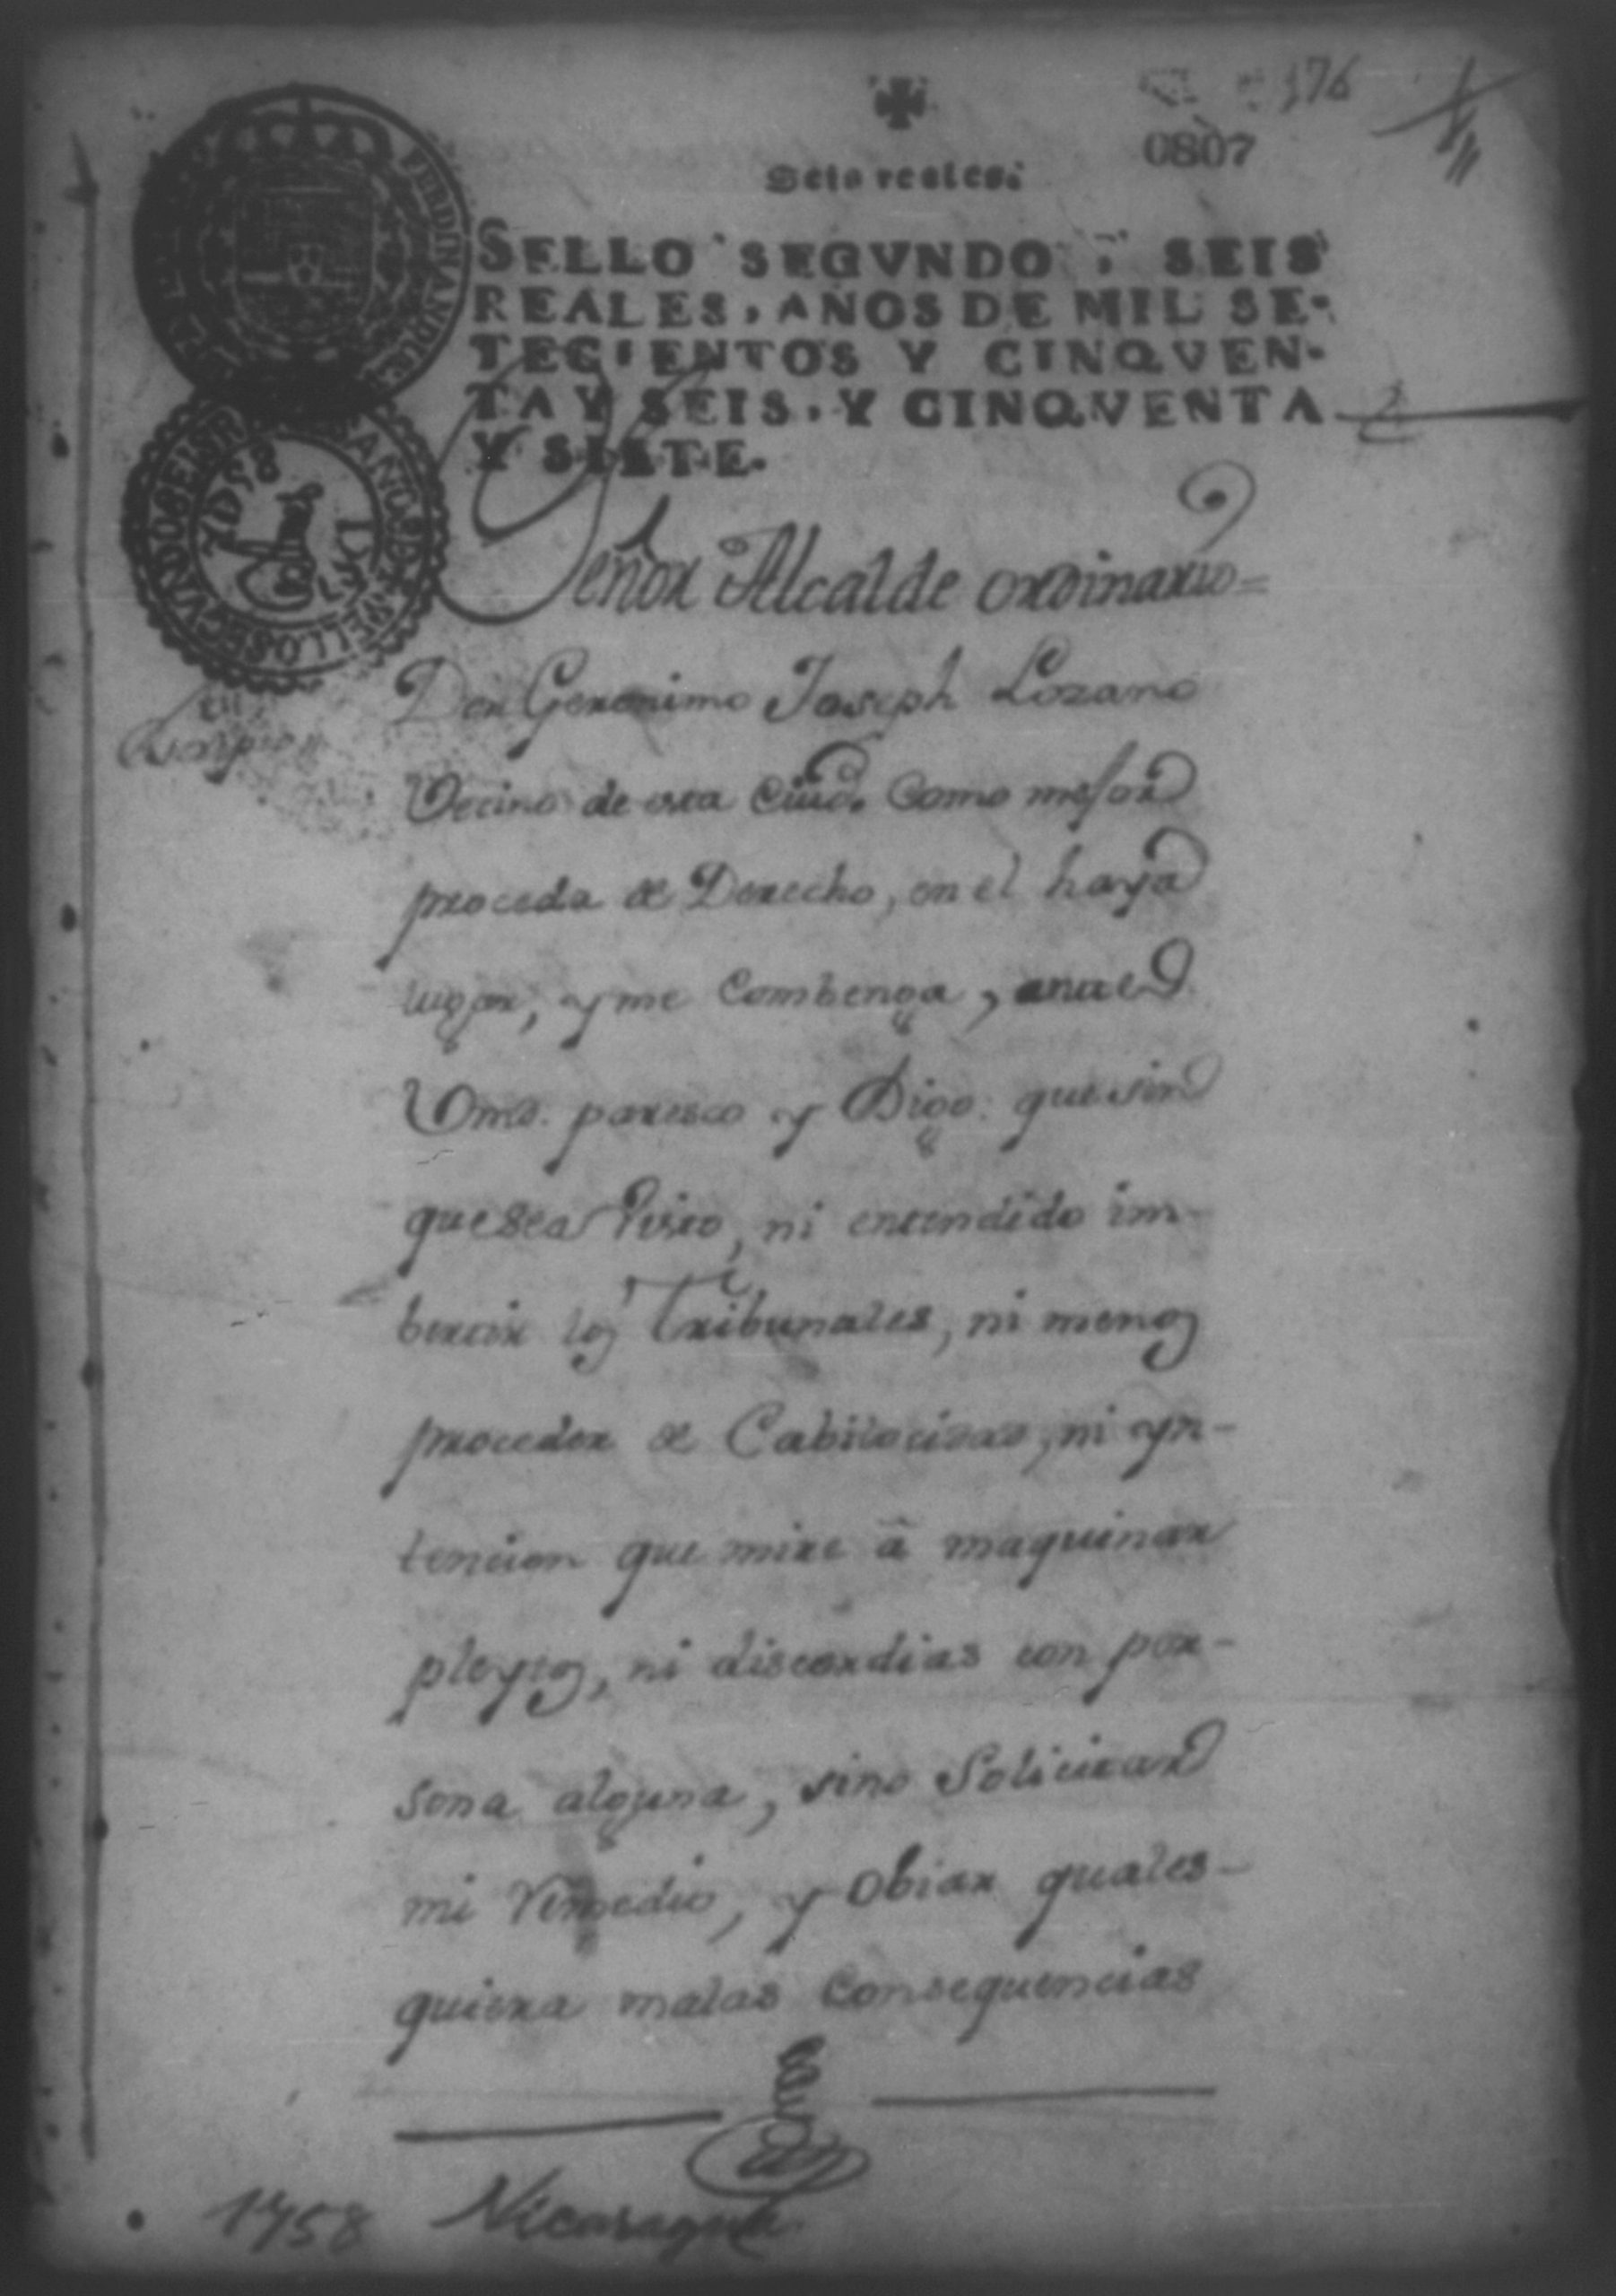 176
0807
Seis reales.
SELLO SEGVNDO, SEIS
REALES, AÑOS DE MIL SE-
TECIENTOS Y CINQVEN-
TA Y SEIS, Y CINQVENTA
Y SIETE.
Señor Alcalde ordinario=
Don Geronimo Joseph Lozano
Vecino de esta Ciud. Como mejor
proceda de Derecho, en el haya
lugar, y me Combenga, ante
Vmd. paresco y Digo: que sin
que sea Visto, ni entendido im-
bertir los Tribunales, ni menos
proceder de Cabilocidad, ni yn-
tencion que mire â maquinar
pleytos, ni discordias con per-
sona alguna, sino Solicitar
mi Remedio, y Obiar quales-
quiera malas Consequencias
1758 Nicaragua